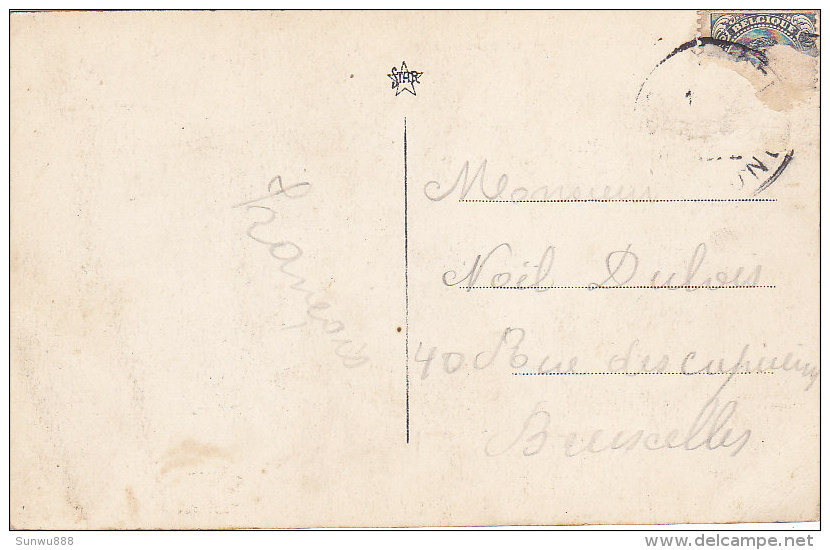 BELGIQUE
STAR
1
François
Monsieur
Noël Dubois
40 Rue des capucins
Bruxelles
Sunwu888
delcampe.net